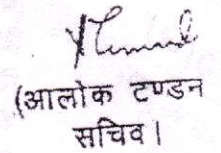 (आलोक टण्डन
सचिव।